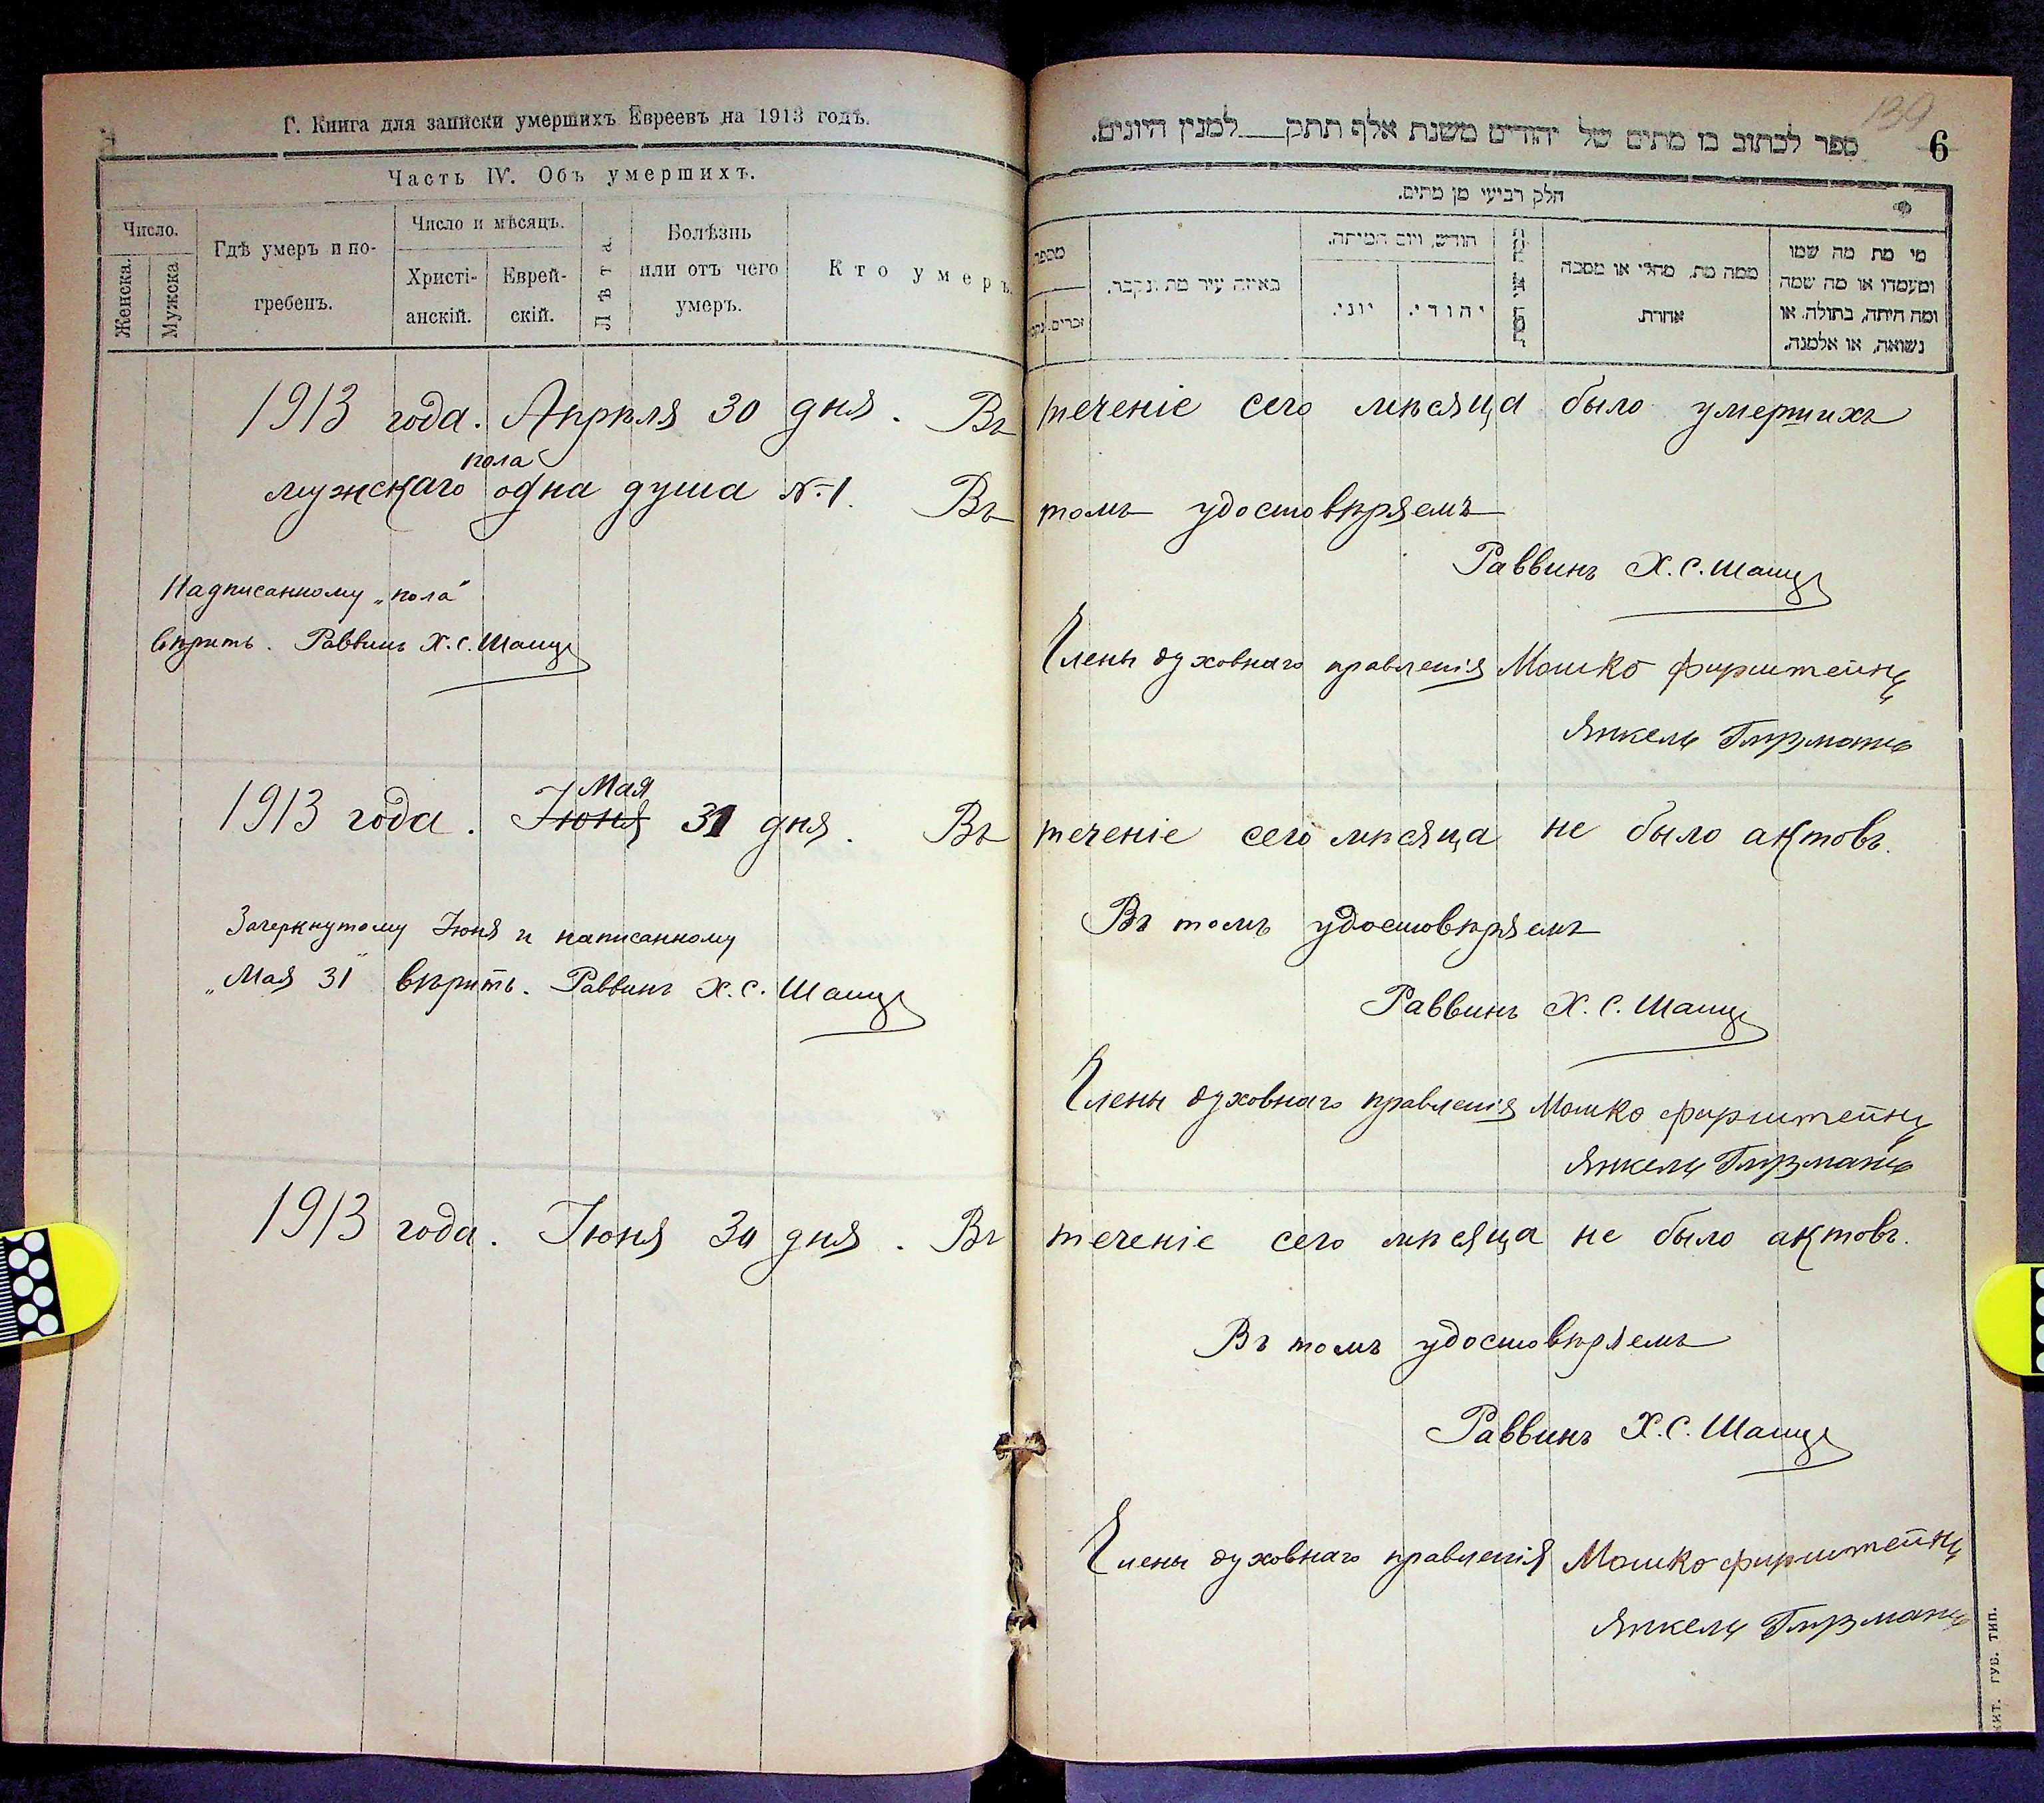 Г. Книга для записки умершихъ Евреевъ на 1913 годъ.
Часть IV. Объ умершихъ.
Число.
Женска.
Мужска
Гдѣ умеръ и по-
гребенъ.
Число и мѣсяцъ.
Христі-
анскій.
Еврей-
скій.
Лѣта.
Болѣзнь
или отъ чего
умеръ.
Кто умеръ.
139
6
ספר לכתוב בו מתים של יהודים משנת אלף תתק למנין היונים.
חלק רביעי מן מתים.
מספר
זכרים.
באיזה עיר מת ונקבר.
חודש, ויום המיתה.
יוני.
יהודי.
ממה מת, מחלי או מסבה
אחרת.
מי מת מה שמו
ומעמדו או מה שמה
ומה היתה, בתולה, או
נשואה, או אלמנה.
1913 года. Апрѣля 30 дня. Въ теченіе сего мѣсяца было умершихъ
пола
мужскаго одна душа №1. Въ томъ удостовѣряемъ
Раввинъ Х. С. Шамъ
Надписанному „пола“
вѣрить. Раввинъ Х. С. Шамъ
Члены духовнаго правленія Мошко Фирштейнъ
Янкель Гирзманъ
Мая
1913 года. Іюня 31 дня. Въ теченіе сего мѣсяца не было актовъ.
Зачеркнутому Іюня и написанному
„Мая 31“ вѣрить. Раввинъ Х. С. Шамъ
Въ томъ удостовѣряемъ
Раввинъ Х. С. Шамъ
Члены духовнаго правленія Мошко Фирштейнъ
Янкель Гирзманъ
1913 года. Іюня 30 дня. Въ теченіе сего мѣсяца не было актовъ.
Въ томъ удостовѣряемъ
Раввинъ Х. С. Шамъ
Члены духовнаго правленія Мошко Фирштейнъ
Янкель Гирзманъ
ЖИТ. ГУБ. ТИП.